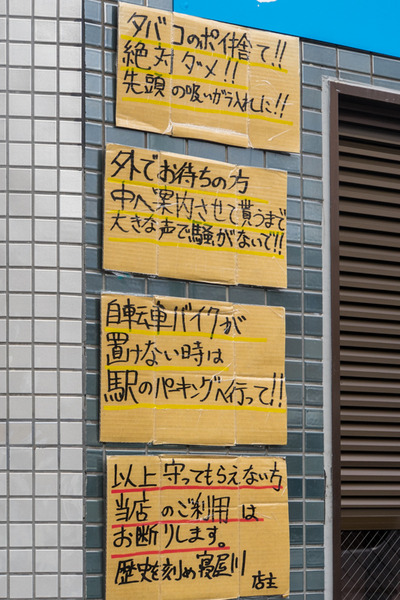 タバコのポイ捨て!!
絶対ダメ!!
先頭の吸いガラ入れに!!
外でお待ちの方
中へ案内させて貰うまで
大きな声で騒がないで!!
自転車バイクが
置けない時は
駅のパーキングへ行って!!
以上守ってもらえない方
当店のご利用は
お断りします。
歴史を刻め寝屋川
店主